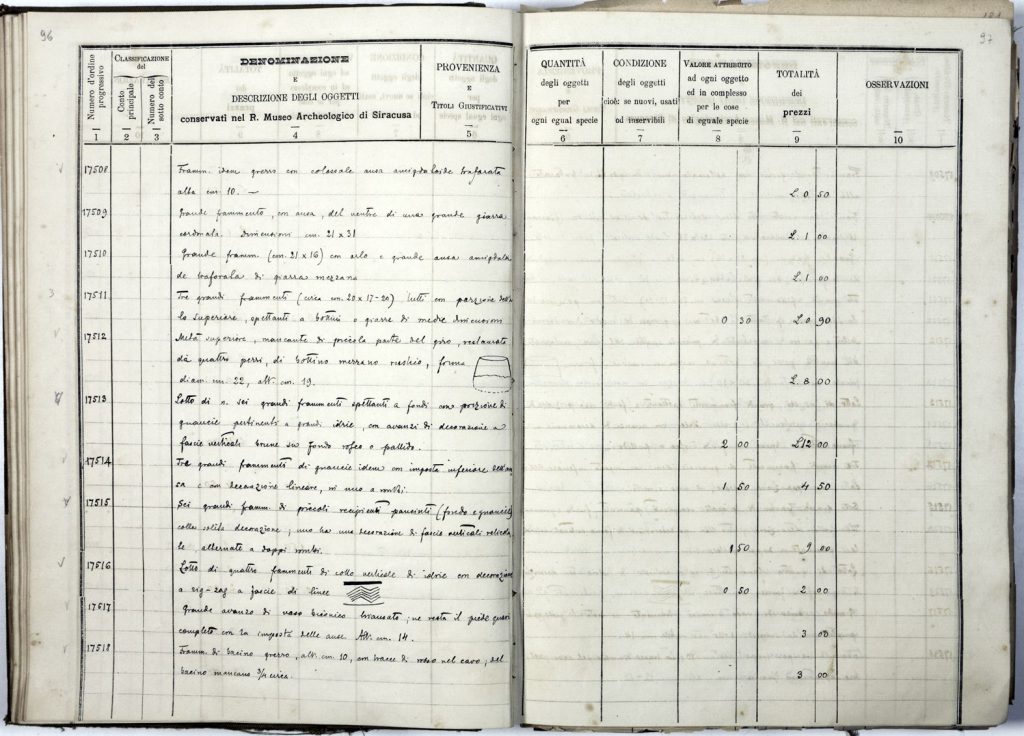 96
Numero d'ordine progressivo
CLASSIFICAZIONE del
Conto principale
Numero del sotto conto
DENOMINAZIONE
E
DESCRIZIONE DEGLI OGGETTI
conservati nel R. Museo Archeologico di Siracusa
PROVENIENZA
E
TITOLI GIUSTIFICATIVI
1 2 3 4 5
17508 Framm. idem grezzo con colossale ansa amigdaloide traforata
alta cm. 10. —
17509 Grande frammento, con ansa, del ventre di una grande giarra
cordonata. Dimensioni cm. 21 x 31
17510 Grande framm. (cm. 21 x 16) con orlo e grande ansa amigdala
de traforata di giarra mezzana
3
17511 Tre grandi frammenti (circa cm. 20 x 17-20) tutti con porzione dell'or
lo superiore, spettanti a bottini o giarre di medie dimensioni
17512 Metà superiore, mancante di piccola parte del giro, restaurata
da quattro pezzi, di bottino mezzano rustico, forma
diam. cm. 22, alt. cm. 19.
17513 Lotto di n. sei grandi frammenti spettanti a fondi con porzione di
guancie pertinenti a grandi idrie, con avanzi di decorazione a
fascie verticali brune su fondo roseo o pallido.
17514 Tre grandi frammenti di guancie idem con imposta inferiore dell'an
sa e con decorazione lineare, in uno a rombi.
17515 Sei grandi framm. di piccoli recipienti panciuti (fondo e guancie)
colla solita decorazione; uno ha una decorazione di fascie verticali reticola
te, alternate a doppi rombi.
17516 Lotto di quattro frammenti di collo verticale di idrie con decorazione
a zig-zag a fascie di linee
17517 Grande avanzo di vaso biconico triansato; ne resta il piede quasi
completo con la imposta delle anse. Alt. cm. 14.
17518 Framm. di bacino grezzo, alt. cm. 10, con tracce di rosso nel cavo; del
bacino mancano 3/4 circa.
97
QUANTITÀ
degli oggetti
per
ogni egual specie
CONDIZIONE
degli oggetti
cioè: se nuovi, usati
od inservibili
VALORE ATTRIBUITO
ad ogni oggetto
ed in complesso
per le cose
di eguale specie
TOTALITÀ
dei
prezzi
OSSERVAZIONI
6 7 8 9 10
L. 0 50
L. 1 00
L. 1 00
0 30 L. 0 90
L. 8 00
2 00 L. 12 00
1 50 4 50
1 50 9 00
0 50 2 00
3 00
3 00